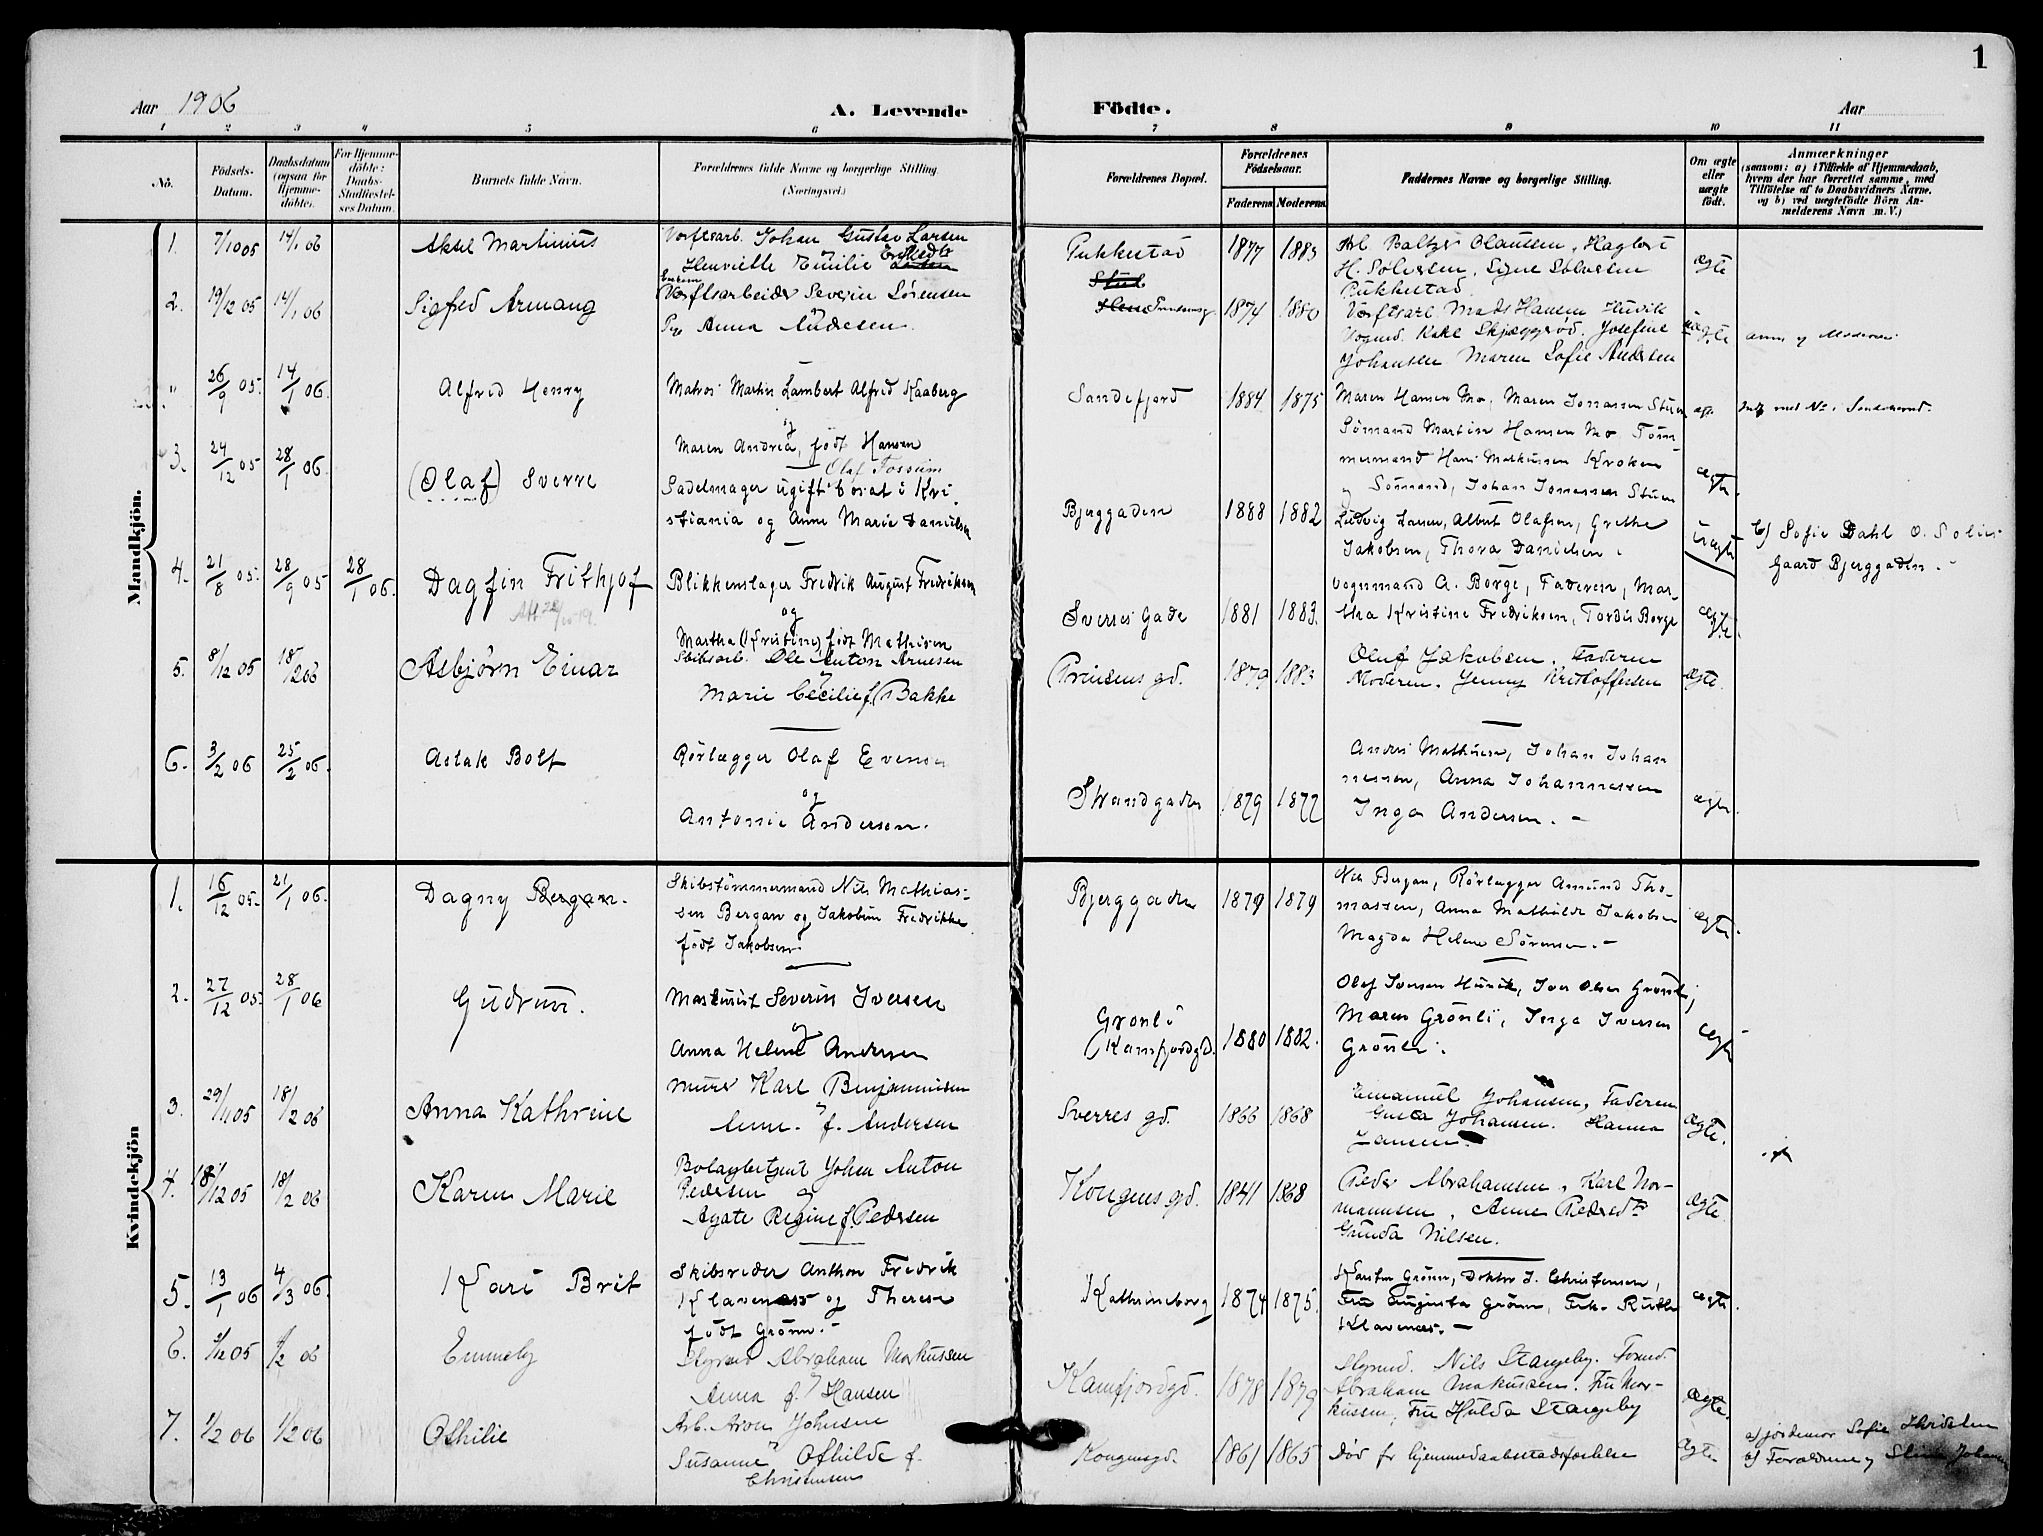 1
Aar 1906
A. Levende Födte.
Aar
1 2 3 4 5 6 7 8 9 10 11
No.
Födsels-
Datum.
Daabsdatum
(ogsaa for
Hjemme-
döbte).
For Hjemme-
döbte:
Daabs-
Stadfæstel-
ses Datum.
Barnets fulde Navn.
Forældrenes fulde Navne og borgerlige Stilling.
(Næringsvei.)
Forældrenes Bopæl.
Forældrenes
Födselsaar.
Faderens Moderens
Faddernes Navne og borgerlige Stilling.
Om ægte
eller
uægte
födt.
Anmærkninger
(saasom: a) i Tilfælde af Hjemmedaab,
hvem der har forrettet samme, med
Tilföielse af to Daabsvidners Navne.
og b) ved uægtefödte Börn An-
melderens Navn m. V.)
Mandkjön.
1. 7/10 05 14/1 06 Aksel Martinius
Verftsarb. Johan Gustav Larsen
Henriette Emilie
Pukkestad 1877 1883
Arb. Baltzer Olaussen,
H. Sölversen, Signe Sölversen
Pukkestad
ægte
2. 19/12 05 14/1 06 Sigfred Armang
Verftsarbeider Severin Sørensen
Pige Anna Andersen
1874 1880
Verftsarb. Mads Hansen Huvik
Skjæggerød. Josefine
Johansen Maren Sofie Andersen
uægte
anm. af Moderen
" 26/9 05. 14/1 06. Alfred Henry
Matros Martin Lambert Alfred Kaaberg
og
Maren Andrea, født Hansen
Sandefjord 1884 1875
Maren Hansen Mo, Maren Jonassen Stuen
Sömand Martin Hansen Mo Töm
mermand Hans Markussen Kroken
Sömand, Johan Jonassen Stuen
ægte
3. 24/12 05 28/1 06. (Olaf) Sverre
Olaf Fossum
Sadelmager ugift bosat i Kri-
stiania og Anne Marie Danielsen
Bjerggaden 1888 1882
Ludvig Larsen, Albert Olafsen, Grethe
Jakobsen, Thora Danielsen.
uægte
b) Sofie Dahl
Gaard Bjerggaden.
4. 21/8 05. 28/9 05 28/1 06. Dagfin Frithjof
Blikkenslager Fredrik August Fredriksen
og
Martha (Kristine) født Mathisen
Sverres Gade 1881 1883.
Vognmand A. Borge, Faderen, Mar-
tha Kristine Fredriksen, Tordis Borge
ægte
5. 8/12 05 18/2 06 Asbjørn Einar
Skibsarb. Ole Anton Arnesen
Marie Cecilie f. Bakke
Prinsens gd. 1879 1883
Oluf Jakobsen, Faderen
Moderen. Jenny Kristoffersen
ægte
6. 3/2 06 25/2 06. Aslak Bolt
Rörlægger Olaf Evensen
og
Antonie Andersen.
Strandgaden 1879 1877
Anders Mathisen, Johan Johan
nessen, Anna Johannessen
Inga Andersen. –
ægte
Kvindekjön
1. 16/12 05. 21/1 06. Dagny Bergan.
Skibstömmermand Nils Mathias-
sen Bergan og Jakobine Fredrikke
født Jakobsen
Bjerggaden 1879 1879
Nils Bergan, Rörlægger Amund Tho-
massen, Anna Mathilde Jakobsen
Magda Helene Sörensen. –
ægte.
2. 27/12 05. 28/1 06 Gudrun.
Maskinist Severin Iversen
og
Anna Helene Andersen
Grønli
(Kamfjordgd. 1880 1882.
Olaf Iversen Huvik, Iver Olsen Grønli,
Maren Grönli, Inga Iversen
Grönli.
ægte
3. 29/11 05 18/2 06 Anna Kathrine
Murer Karl Benjaminsen
Anne f. Andersen
Sverres gd. 1866 1868
Emanuel Johansen, Faderen
Johansen. Hanna
Jansen
ægte.
4. 18/12 05 18/2 06 Karen Marie
Johan Anton
Pedersen og
Agate Regine f. Pedersen
Kongens gd. 1841 1868
Peder Abrahamsen, Karl Nor-
mannsen, Anne
Gunda Nilsen.
ægte
5. 13/1 06 4/3 06. Kari Brit
Skibsreder Anthon Fredrik
Klaveness og Therese
födt Grönn. –
Kathrineborg 1874 1875.
Karsten Grönn, Doktor J. Christensen,
Fru Augusta Grönn, Frk. Ruth
Klavenæs. –
ægte.
6. 05 06 Emmely
Styrmd Abraham Markussen
Anna f. Hansen
Kamfjordgd. 1878 1879
Styrmd. Nils Stangeby. Tömd.
Abraham Makussen. Fru Mar-
kussen, Fru Hulda Stangeby
ægte.
7. 1/2 06 1/2 06 Othilie
Arb. Aron Johnsen
Susanne Othilde f.
Christensen
Kongensgd. 1861 1865
Död før hjemmedaabsstadfæstelse
ægte
a) jordemor Sofie
b) Forældrene og